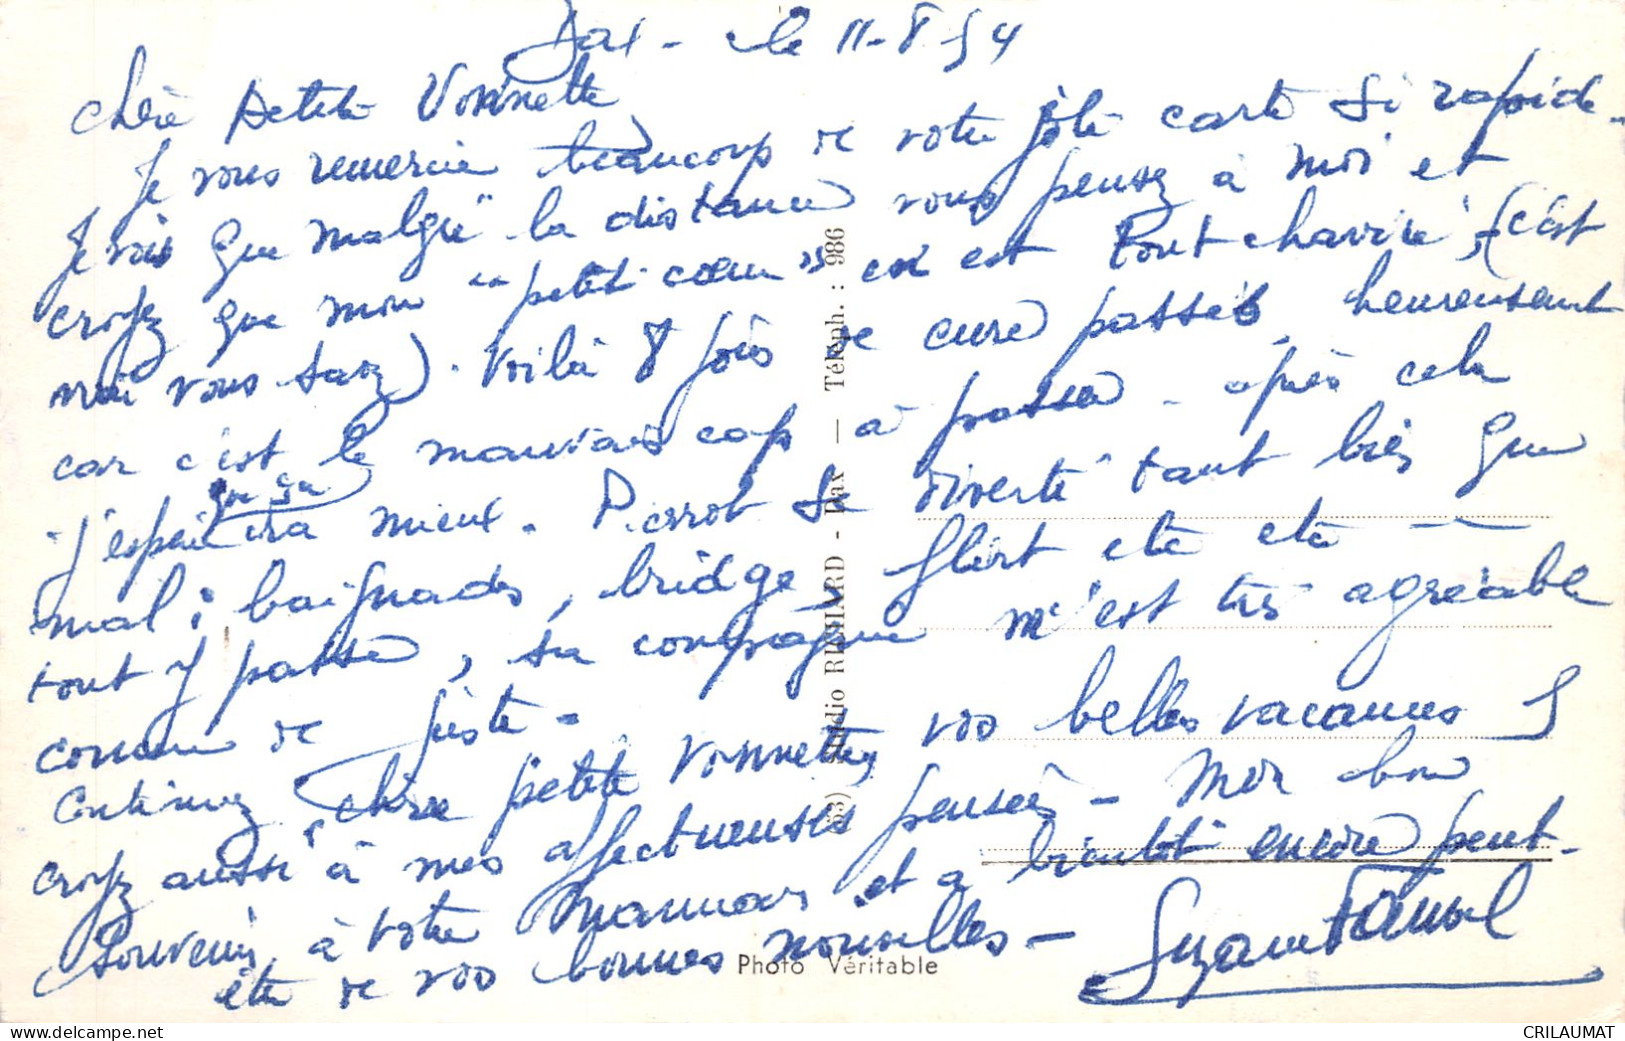 Dax - le 11-8-54
Chère Petite Vonnette
Je vous remercie beaucoup de votre jolie carte si rapide.
Je vois que malgré la distance vous pensez à moi et
croyez que mon "petit cœur" en est tout chaviré, (c'est
vrai vous savez). Voilà 8 jours de cure passés, heureusement
car c'est le mauvais cap à passer. après cela
j'espère que ça ira mieux. Pierrot se divertit tant bien que
mal : baignades, bridge, flirt etc etc —
tout y passe, sa compagnie m'est très agréable
comme de juste.
Continuez, chère petite Vonnette, vos belles vacances &
croyez aussi à mes affectueuses pensées - Mon bon
souvenir à votre maman et à bientôt encore peut-
être de vos bonnes nouvelles -
Suzanne
Studio RICHIARD - Dax — Téléph. : 986
Photo Véritable
CRILAUMAT